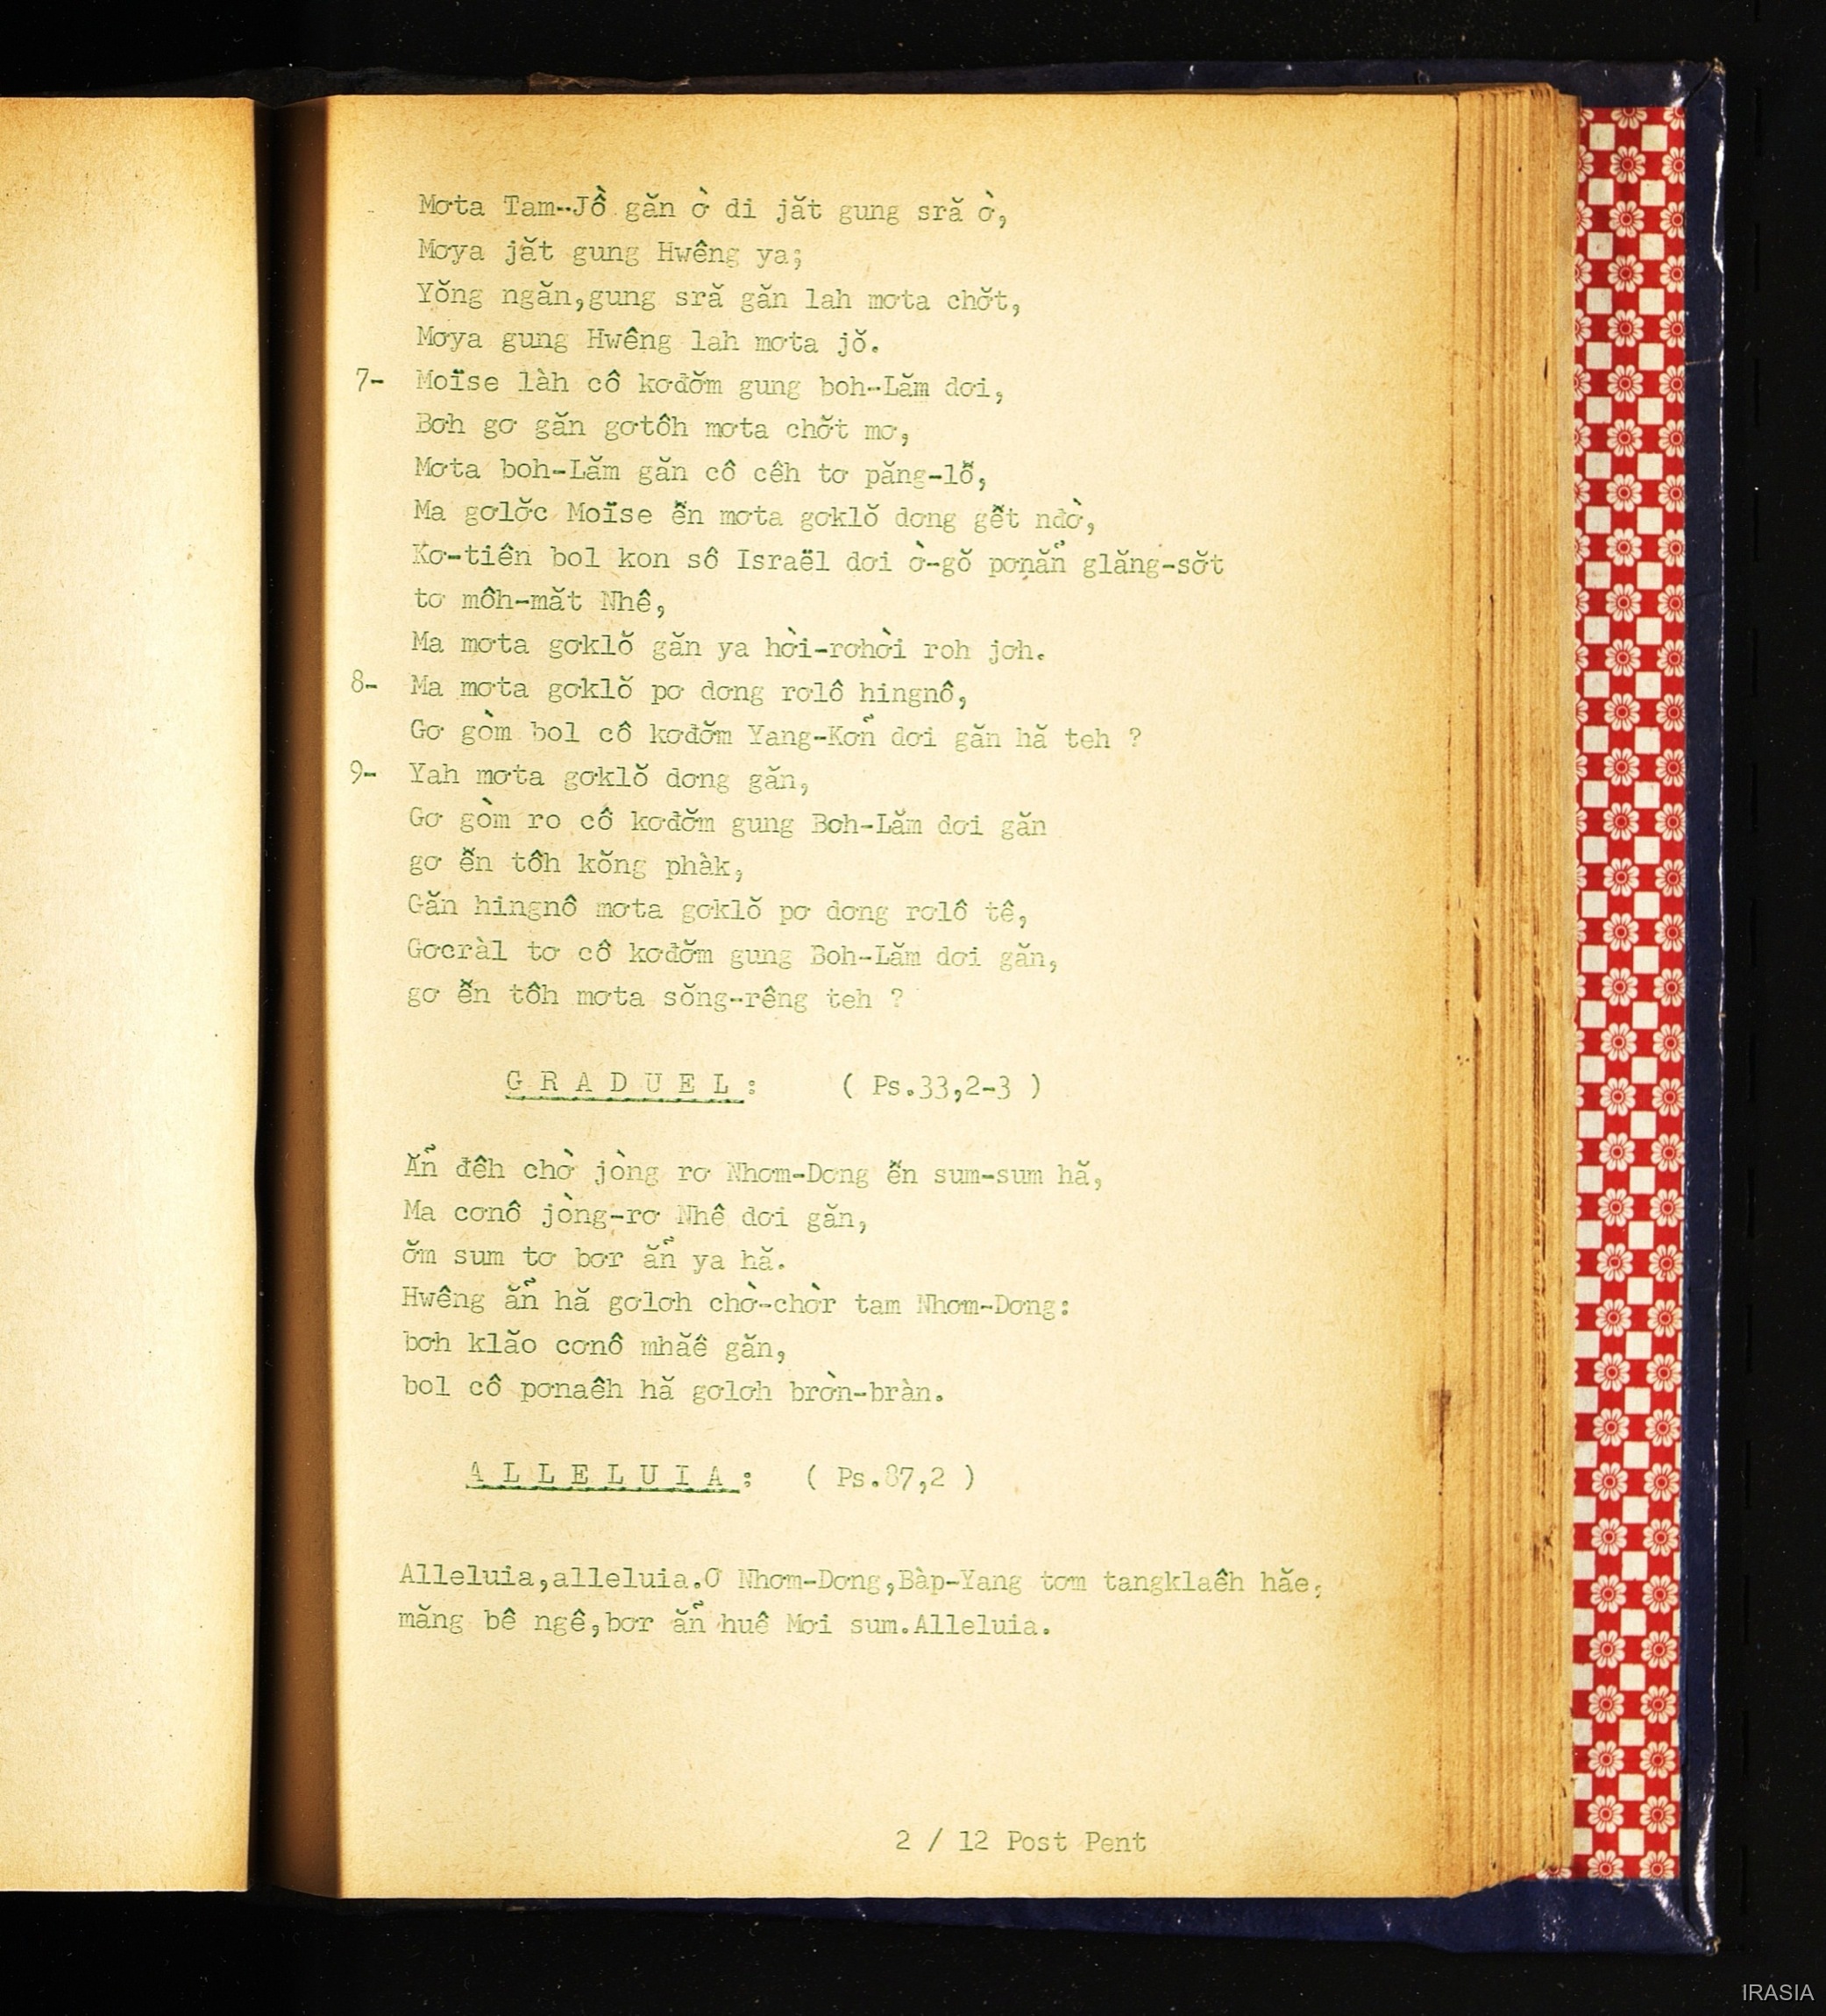 Mơta Tam-Jồ găn ờ di jăt gung sră ờ,
Mơya jăt gung Hwêng ya;
Yŏng ngăn,gung sră găn lah mơta chơ̆t,
Mơya gung Hwêng lah mơta jŏ.
7- Moïse làh cô kơđơ̆m gung boh-Lăm dơi,
Bơh gơ găn gơtôh mơta chơ̆t mơ,
Mơta boh-Lăm găn cô cêh tơ păng-lô̆,
Ma gơlơ̆c Moïse ê̆n mơta gơklŏ dơng gê̆t nđờ,
Kơ-tiên bol kon sô Israël dơi ờ-gŏ pơnẳn glăng-sơ̆t
tơ môh-măt Nhê,
Ma mơta gơklŏ găn ya hời-rơhời roh jơh.
8- Ma mơta gơklŏ pơ dơng rơlô hingnô,
Gơ gòm bol cô kơđơ̆m Yang-Kởn dơi găn hă teh ?
9- Yah mơta gơklŏ dơng găn,
Gơ gòm ro cô kơđơ̆m gung Boh-Lăm dơi găn
gơ ê̆n tôh kŏng phàk,
Găn hingnô mơta gơklŏ pơ dơng rơlô tê,
Gơcràl tơ cô kơđơ̆m gung Boh-Lăm dơi găn,
gơ ê̆n tôh mơta sŏng-rêng teh ?
G R A D U E L : ( Ps.33,2-3 )
Ẳn đêh chờ jòng rơ Nhơm-Dơng ê̆n sum-sum hă,
Ma cơnô jòng-rơ Nhê dơi găn,
ơ̆m sum tơ bơr ẳn ya hă.
Hwêng ẳn hă gơlơh chờ-chờr tam Nhơm-Dơng:
bơh klăo cơnô mhăê găn,
bol cô pơnaêh hă gơlơh bròn-bràn.
A L L E L U I A : ( Ps.87,2 )
Alleluia,alleluia.Ơ Nhơm-Dơng,Bàp-Yang tơm tangklaêh hăe,
măng bê ngê,bơr ẳn huê Mơi sum.Alleluia.
2 / 12 Post Pent
IRASIA